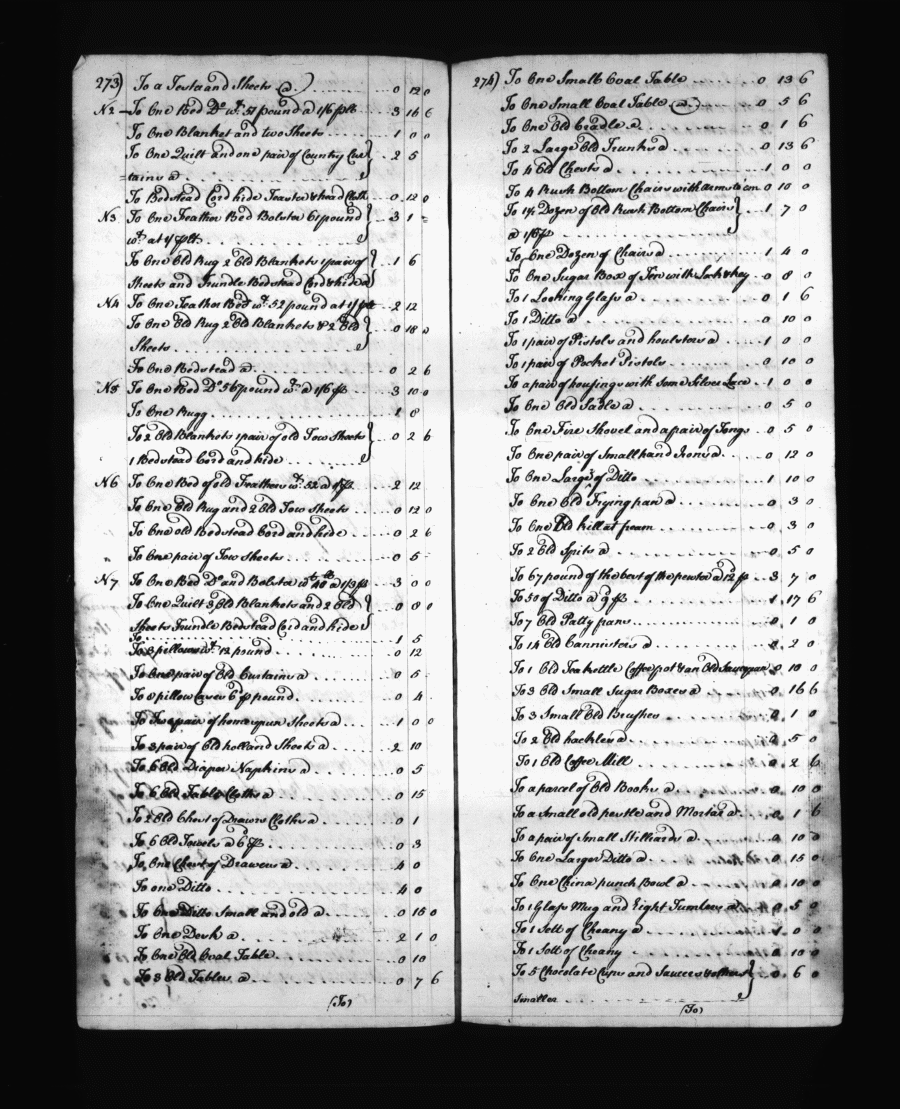 273) To a Test and Sheets @ ) . . . . 0 12 0
No 2 To One Bed Do wt. 51 pound a 1/6 plb 3 16 6
To One Blanket and two Sheets . . . . 1 0 0
To One Quilt and one pair of Country Cur } 2 5
=tains a . . . .
To Bedstead Cord hide Teaster & head Cloth 0 12 0
No 3 To One Feather Bed Bolster 61 pound } 3 1 =
wt. at 1/ plb . . . .
To One Old Rug 2 Old Blankets 1 pair of } 1 6
Sheets and Trundle Bedstead Cord & hide a
No 4 To One Feather Bed wt. 52 pound at 1/ plb 2 12
To One Old Rug 2 Old Blankets & 2 Old } 0 18 0
Sheets . . . .
To One Bedstead a . . . . 0 2 6
No 5 To One Bed Do 56 pound wt. a 1/6 p . . 3 10 0
To One Rugg . . . . 1 8
To 2 Old Blankets 1 pair of old Tow Sheets } 0 2 6
1 Bedstead Cord and hide . . . .
No 6 To One Bed of old Feathers wt. 52 a 1/ p . . 2 12
To One Old Rug and 2 Old Tow Sheets . . 0 12 0
To One old Bedstead Cord and hide . . 0 2 6
To One pair of Tow Sheets . . . . 0 5 -
No 7 To One Bed Do and Bolster wt. 48 lb a 1/3 p 3 0 0
To One Quilt 3 Old Blankets and 2 Old } 0 8 0
Sheets Trundle Bedstead Cord and hide
To . . . . 1 5
To 3 pillows wt. 12 pound . . . . 0 12
To One pair of Old Curtains a . . . . 0 5
To 8 pillow cases 6 p pound . . . . 0 4
To Two pair of homespun Sheets a . . . . 1 0 0
To 3 pair of Old holland Sheets a . . . . 2 10
To 6 Old Diaper Napkins a . . . . 0 5
To 6 Old Table Cloths a . . . . 0 15
To 2 Old Chest of Drawers Cloths a . . . . 0 1
To 6 Old Towels a 6d p . . . . 0 3
To One Chest of Drawers a . . . . 4 0
To one Ditto . . . . 4 0
To One Ditto Small and old a . . . . 0 15 0
To One Desk a . . . . 2 1 0
To One Old Oval Table . . . . 0 10
To 3 Old Tables a . . . . 0 7 6
(To)
274) To One Small Oval Table . . . . 0 13 6
To One Small Oval Table (a) . . . . 0 5 6
To One Old Cradle a . . . . 0 1 6
To 2 Large Old Trunks a . . . . 0 13 6
To 4 Old Chests a . . . . 1 0 0
To 4 Rush Bottom Chairs with arms to em 0 10 0
To 1 1/2 Dozen of Old Rush Bottom Chairs } 1 7 0
a 1/6 p . . . .
To One Dozen of Chairs a . . . . 1 4 0
To One Sugar Box of Tin with Lock & key . . 0 8 0
To 1 Looking Glass a . . . . 0 1 6
To 1 Ditto a . . . . 0 10 0
To 1 pair of Pistols and houlsters a . . . . 1 0 0
To 1 pair of Pocket Pistols . . . . 0 10 0
To a pair of housings with Some Silver Lace . . 1 0 0
To One Old Sadle a . . . . 0 5 0
To One Fire Shovel and a pair of Tongs . . 0 5 0
To One pair of Small hand Irons a . . . . 0 12 0
To One Large of Ditto . . . . 1 10 0
To One Old Frying pan a . . . . 0 3 0
To One Old Kill at fream . . . . 0 3 0
To 2 Old Spits a . . . . 0 5 0
To 67 pound of the best of the pewter a 12 p 3 7 0
To 50 of Ditto a 9 p . . . . 1 17 6
To 7 Old Patty pans . . . . 0 1 0
To 14 Old Cannisters a . . . . 2 0
To 1 Old Tea kettle Coffee pot & an Old Saucepan 0 10 0
To 3 Old Small Sugar Boxes a . . . . 0 16 6
To 3 Small Old Brushes . . . . 0 1 0
To 2 Old hackles a . . . . 0 5 0
To 1 Old Coffee Mill . . . . 0 2 6
To a parcel of Old Books a . . . . 0 10 0
To a Small old pestle and Mortar a . . 0 1 6
To a pair of Small Stilliards a . . . . 0 10 0
To One Larger Ditto a . . . . 0 15 0
To One China punch Bowl a . . . . 0 10 0
To 1 Glass Mug and Eight Tumblers a . . 0 5 0
To 1 Sett of Cheany a . . . . 1 0 0
To 1 Sett of Cheany . . . . 0 10 0
To 5 Chocolate Cups and Saucers & others } 0 6 0
Smaller . . . .
(To)